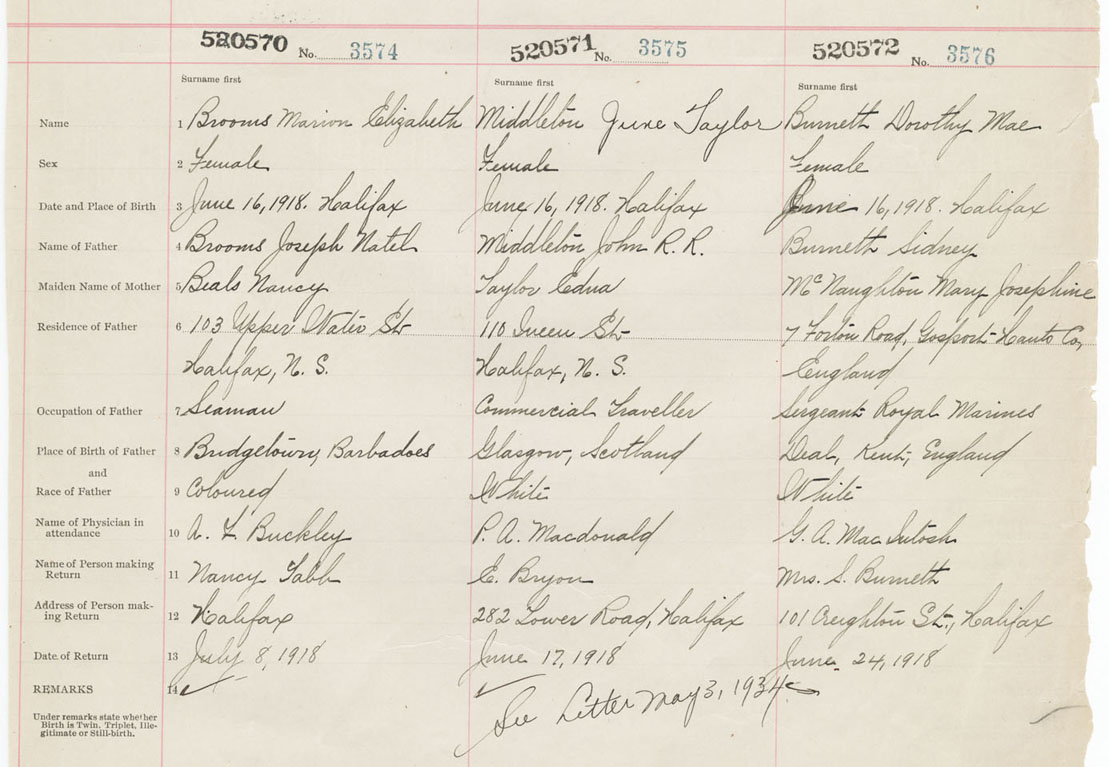 520570 No. 3574 520571 No. 3575 520572 No. 3576
Surname first Surname first Surname first
Name 1 Brooms Marion Elizabeth Middleton June Taylor Burneth Dorothy Mae
Sex 2 Female Female Female
Date and Place of Birth 3 June 16, 1918. Halifax June 16, 1918. Halifax June 16, 1918. Halifax
Name of Father 4 Brooms Joseph Natel Middleton John R. R. Burneth Sidney
Maiden Name of Mother 5 Beals Nancy Taylor Edna McNaughton Mary Josephine
Residence of Father 6 103 Upper Water St 110 Queen St 7 Forton Road, Gosport Hants Co,
Halifax, N. S. Halifax, N. S. England
Occupation of Father 7 Seaman Commercial Traveller Sergeant Royal Marines
Place of Birth of Father 8 Bridgetown, Barbadoes Glasgow, Scotland Deal, Kent, England
and
Race of Father 9 Coloured White White
Name of Physician in
attendance 10 A. L. Buckley P. A. Macdonald G. A. MacIntosh
Name of Person making
Return 11 Nancy Tabb E. Bryon Mrs. S. Burneth
Address of Person mak-
ing Return 12 Halifax 282 Lower Road, Halifax 101 Creighton St., Halifax
Date of Return 13 July 8, 1918 June 17, 1918 June 24, 1918
REMARKS 14 See Letter May 3, 1934
Under remarks state whether
Birth is Twin, Triplet, Ille-
gitimate or Still-birth.